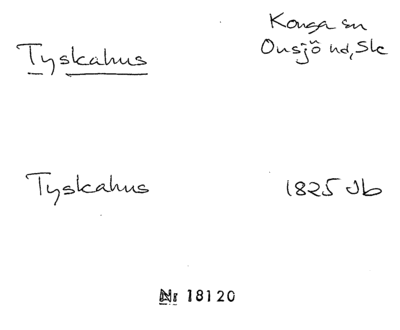 Tyskahus
Konga sn
Onsjö hd, Sk
Tyskahus
1825 Jb
Nr 18120